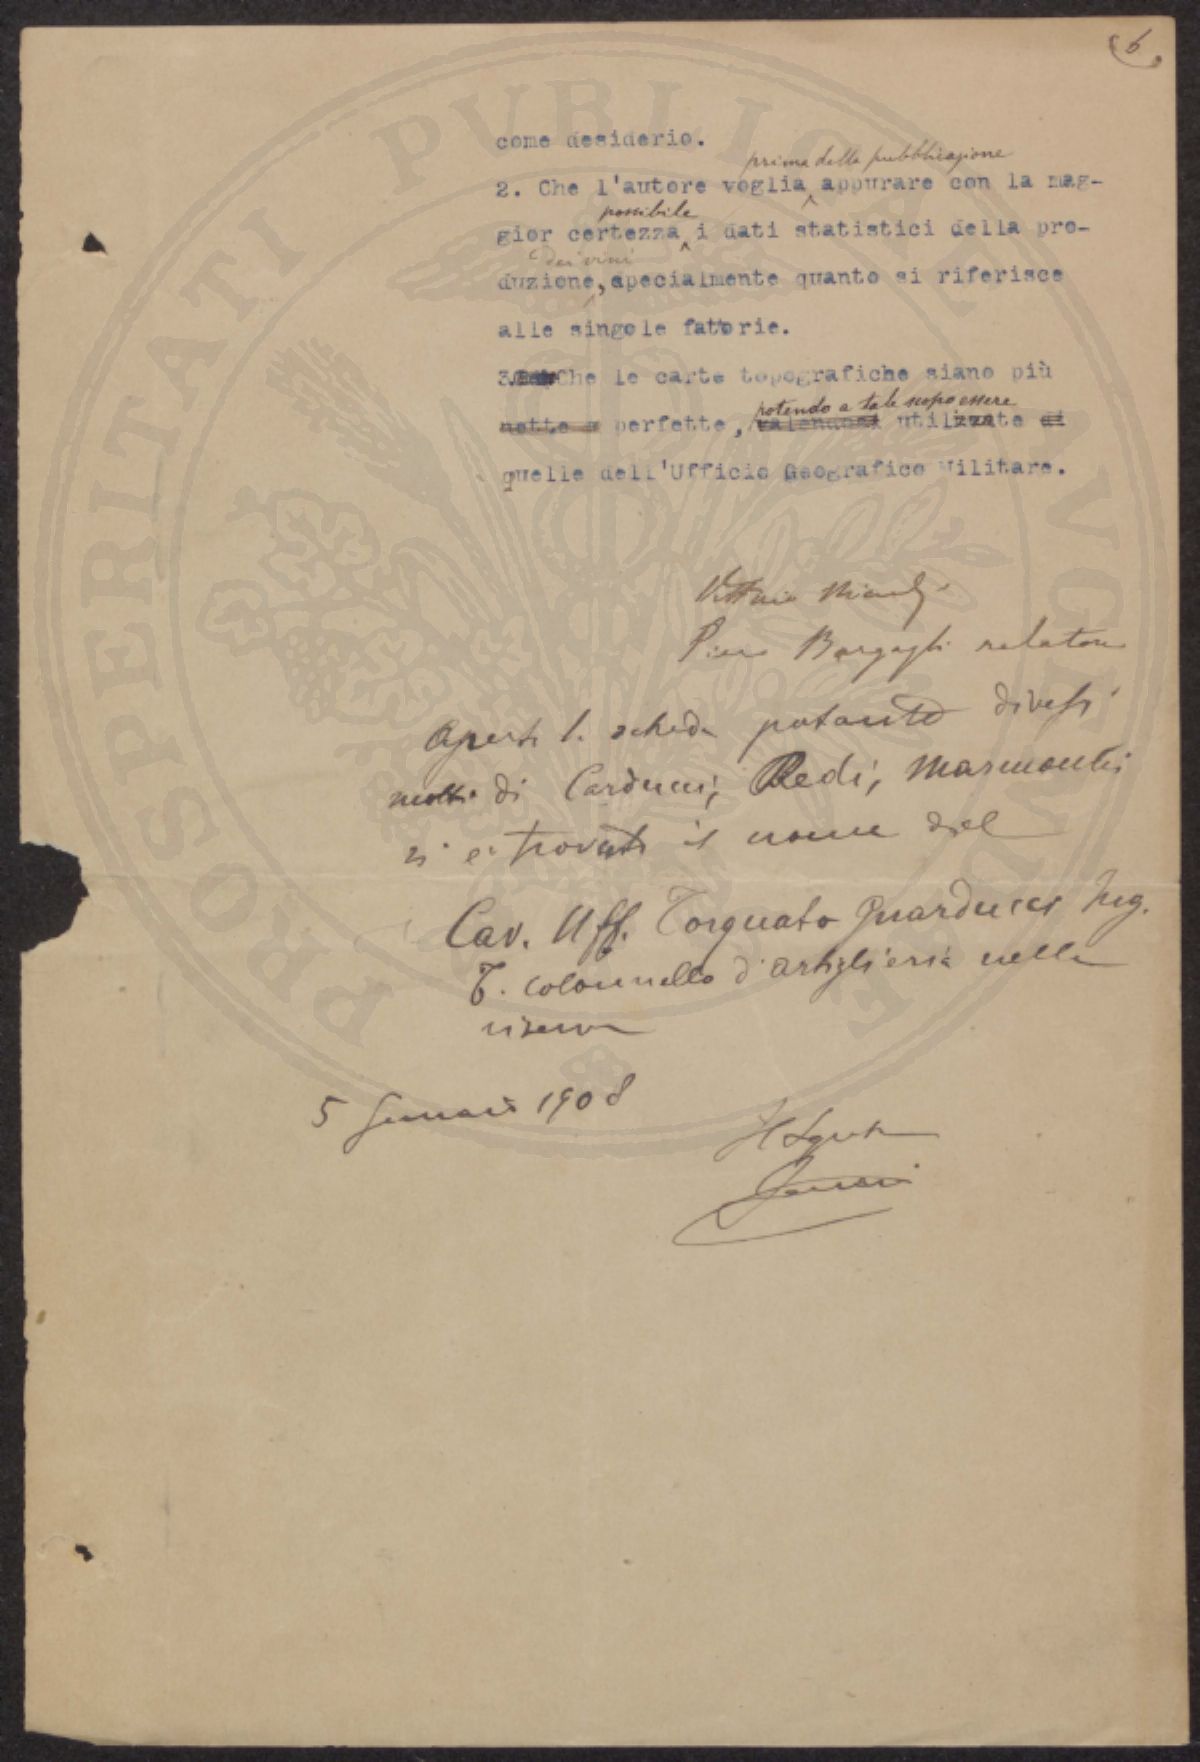 6
come desiderio.
prima della pubblicazione
2. Che l'autore voglia appurare con la mag-
possibile
gior certezza i dati statistici della pro-
dei vini
duzione, specialmente quanto si riferisce
alle singole fattorie.
3. Che le carte topografiche siano più
potendo a tale scopo essere
nette e perfette, valendosi utilizzate di
quelle dell'Ufficio Geografico Militare.
Vittorio
Piero Bargagli relatore
Aperte la scheda portante diversi
motti di Carducci, Redi, Marmontis
si è trovato il nome del
Cav. Uff. Torquato Guarducci Ing.
T. colonnello d'artiglieria nella
riserva
5 Gennaio 1908
Il Segret
PROSPERITATI PUBLICAE AVGENDAE